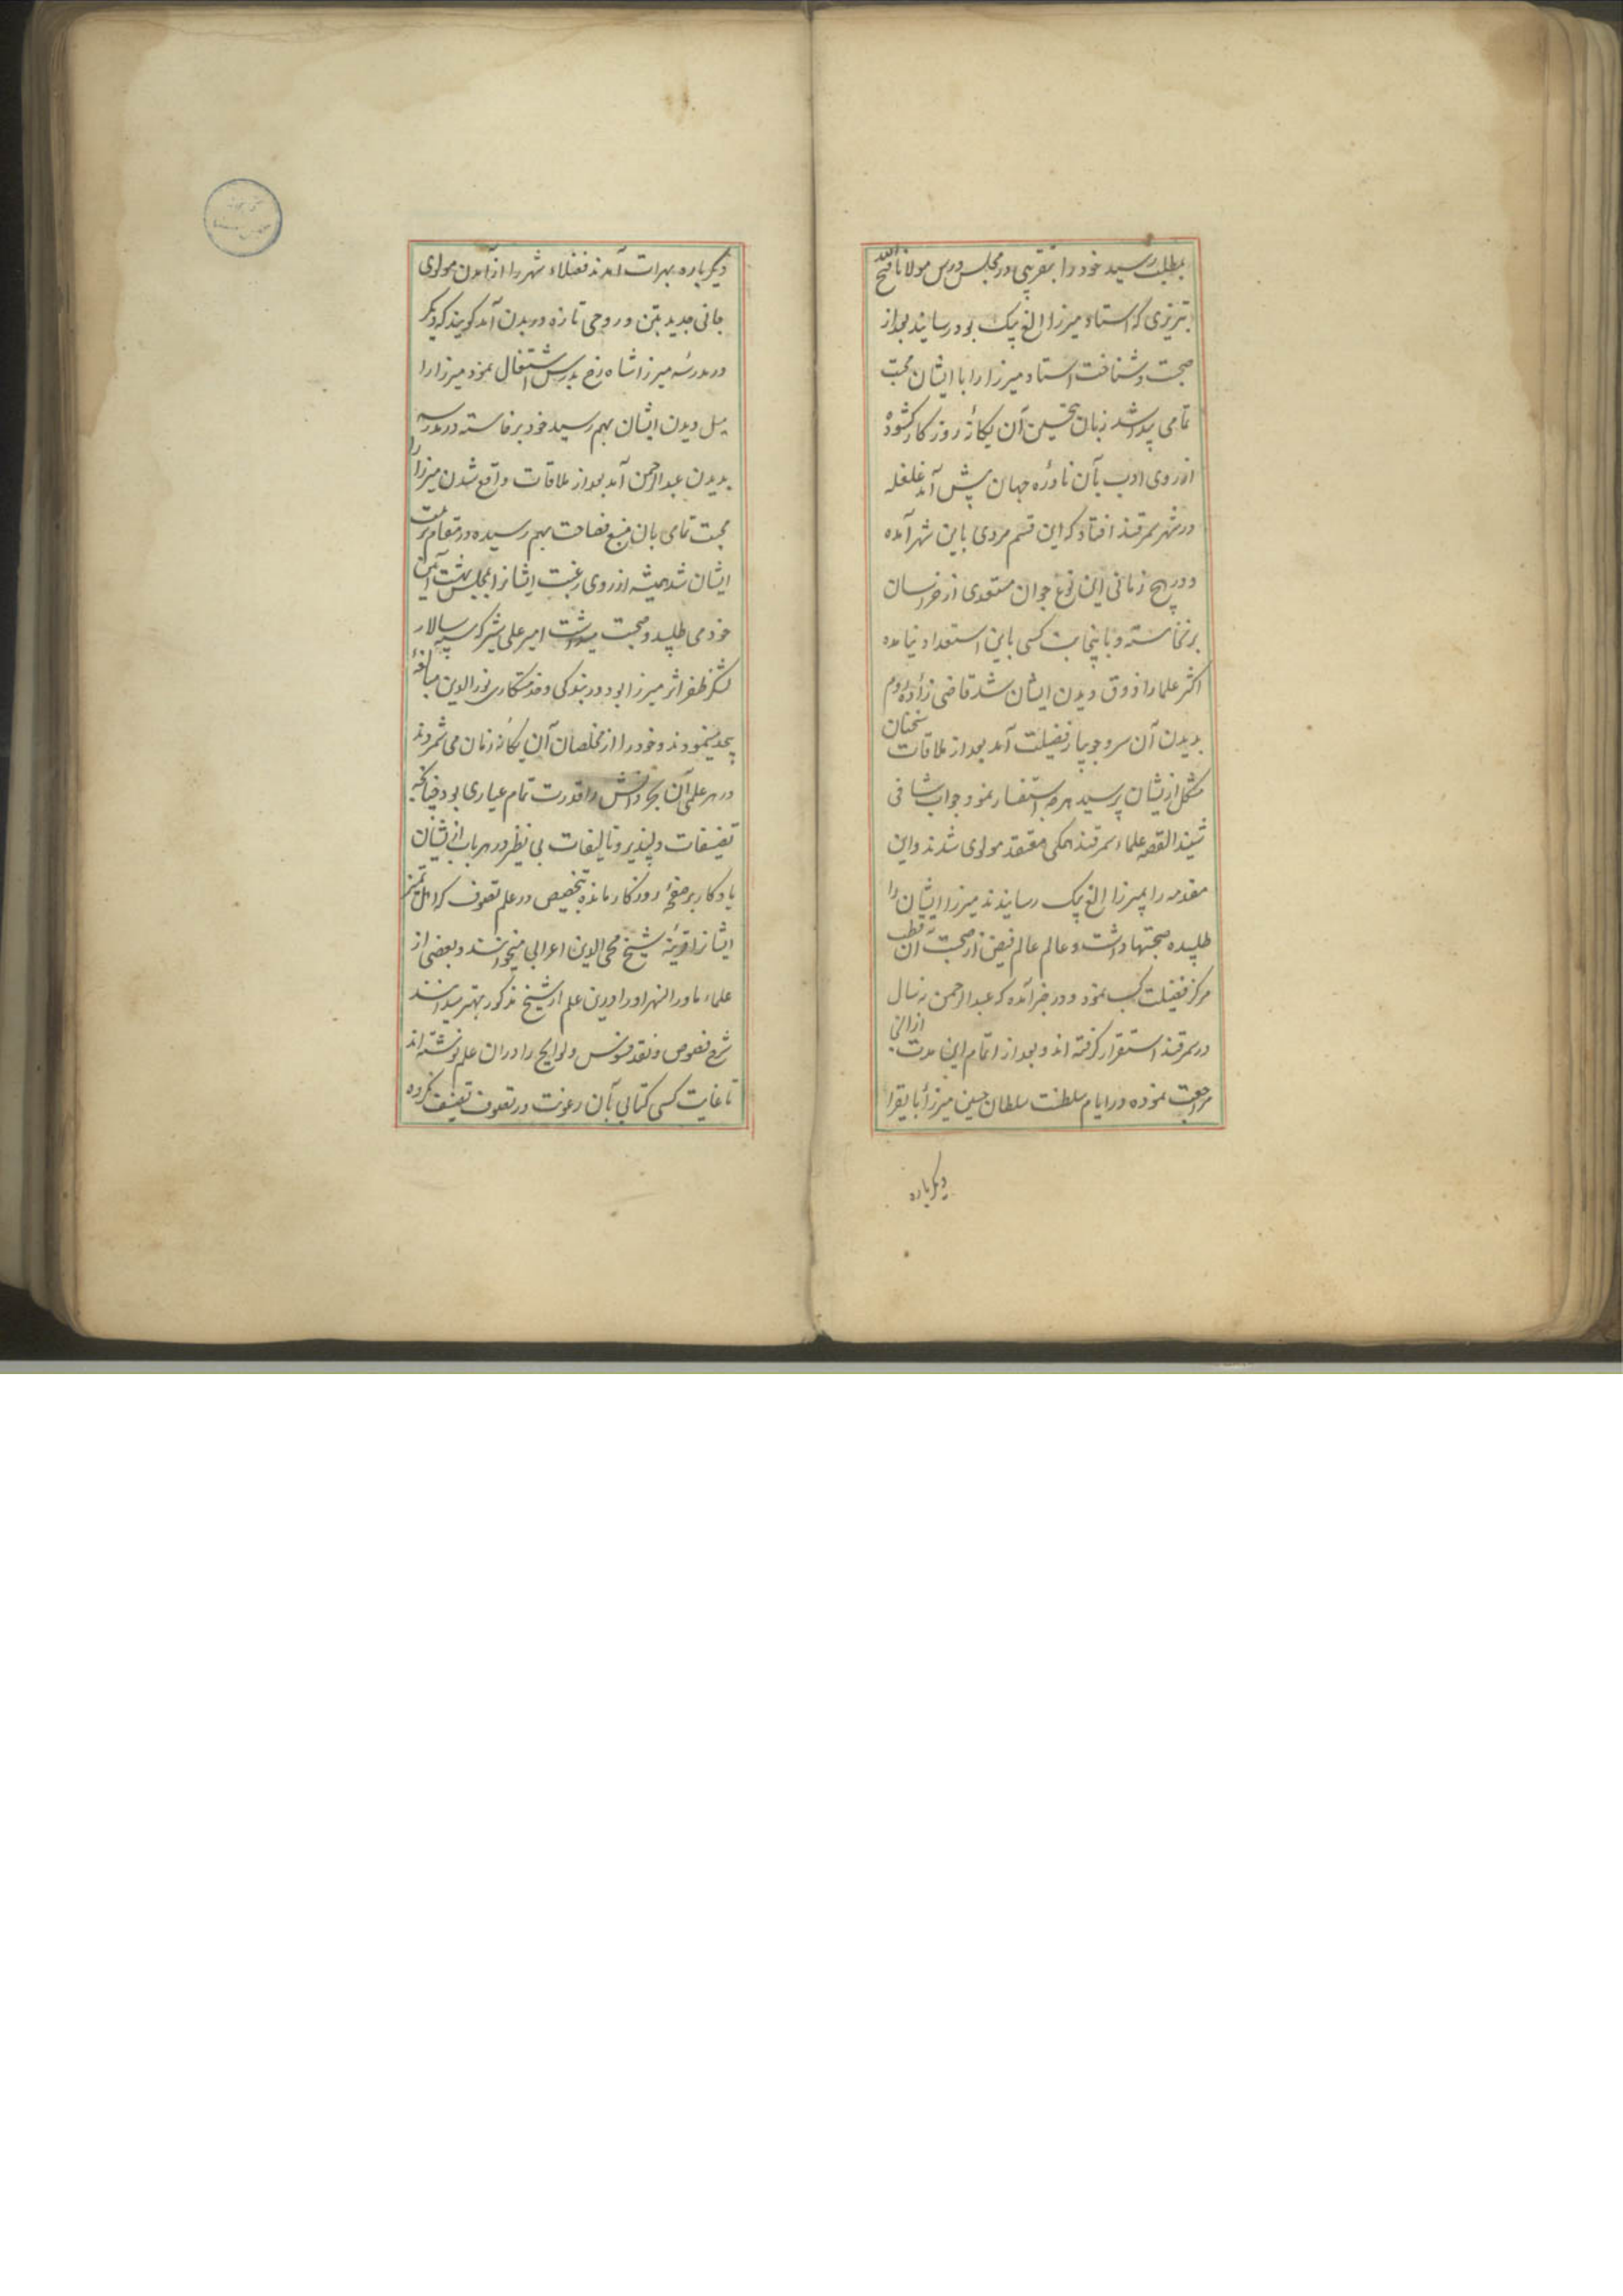 بمطلب رسید خود را بتقریبی در مجلس درس مولانا فتح الله
تبریزی که استاد میرزا الغ بیک بود رسانید بعد از
صحبت و شناخت استاد میرزا را با ایشان محبت
تمامی پیدا شد زبان تحسین آن یکانهٔ روزکار کشوده
از روی ادب بآن نادرهٔ جهان پیش آمد غلغله
در شهر سمرقند افتاد که این قسم مردی باین شهر آمده
و در هیچ زمانی این نوع جوان مستعدی از خراسان
برنخاسته و باینجانب کسی باین استعداد نیامده
اکثر علما را ذوق دیدن ایشان شد قاضی زادهٔ روم
بدیدن آن سرو جویبار فضیلت آمد بعد از ملاقات سخنان
مشکل ازیشان پرسید هر چه استفسار نمود جواب شافی
شنید القصه علماء سمرقند همکی معتقد مولوی شدند و این
مقدمه را بمیرزا الغ بیک رسانیدند میرزا ایشان را
طلبیده صحبتها داشت و عالم عالم فیض از صحبت آن قطب
مرکز فضیلت کسب نمود و در خبر آمده که عبدالرحمن نه سال
در سمرقند استقرار کرفته اند و بعد از اتمام این مدت ازانجا
مراجعت نموده در ایام سلطنت سلطان حسین میرزا بایقرا
دیکرباره
دیکر باره بهرات آمدند فضلاء شهر را از آمدن مولوی
جانی جدید بتن و روحی تازه در بدن آمد کویند که دیکر
در مدرسهٔ میرزا شاه رخ بدرس اشتغال نمود میرزا را
میل دیدن ایشان بهم رسید خود برخاسته در مدرسه
بدیدن عبدالرحمن آمد بعد از ملاقات واقع شدن میرزا را
محبت تمامی بان منبع فصاحت بهم رسیده در مقام تربیت
ایشان شد همیشه از روی رغبت ایشانرا بمجلس بهشت آیین
خود می طلبید و صحبت میداشت امیر علی شیر که سپه سالار
لشکر ظفر اثر میرزا بود در بندکی و خدمتکاری نورالدین مبالغهٔ
بیحد مینمودند و خود را از مخلصان آن یکانهٔ زمان می شمردند
در هر علمی آن بحر دانش را قدرت تمام عیاری بود چنانکه
تصنیفات دلپذیر و تالیفات بی نظیر در هر باب ازیشان
یادکار بر صفحهٔ روزکار مانده بتخصیص در علم تصوف که اهل تمیز
ایشانرا قرینهٔ شیخ محی الدین اعرابی میخوانند و بعضی از
علماء ماوراالنهر او را درین علم از شیخ مذکور بهتر میدانند
شرح فصوص و نقد فصوص و لوایح را دران علم نوشته اند
تا غایت کسی کتابی بآن رعونت در تصوف تصنیف نکرده